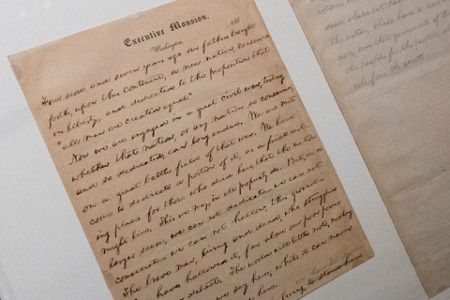 Executive Mansion,
Washington, 186
Four score and seven years ago our fathers brought
forth, upon this continent, a new nation, conceived
in liberty, and dedicated to the proposition that
"all men are created equal"
Now we are engaged in a great civil war, testing
whether that nation, or any nation so conceived,
and so dedicated, can long endure. We are met
on a great battle field of that war. We have
come to dedicate a portion of it, as a final rest-
ing place for those who died here, that the nation
might live. This we may, in all propriety do. But, in a
larger sense, we can not dedicate — we can not
consecrate — we can not hallow, this ground —
The brave men, living and dead, who struggled
have hallowed it, far above our poor power
detract. The world will little note, nor long
we say here; while it can never
here.
living, to stand here,
the nation, shall have
the people for the people